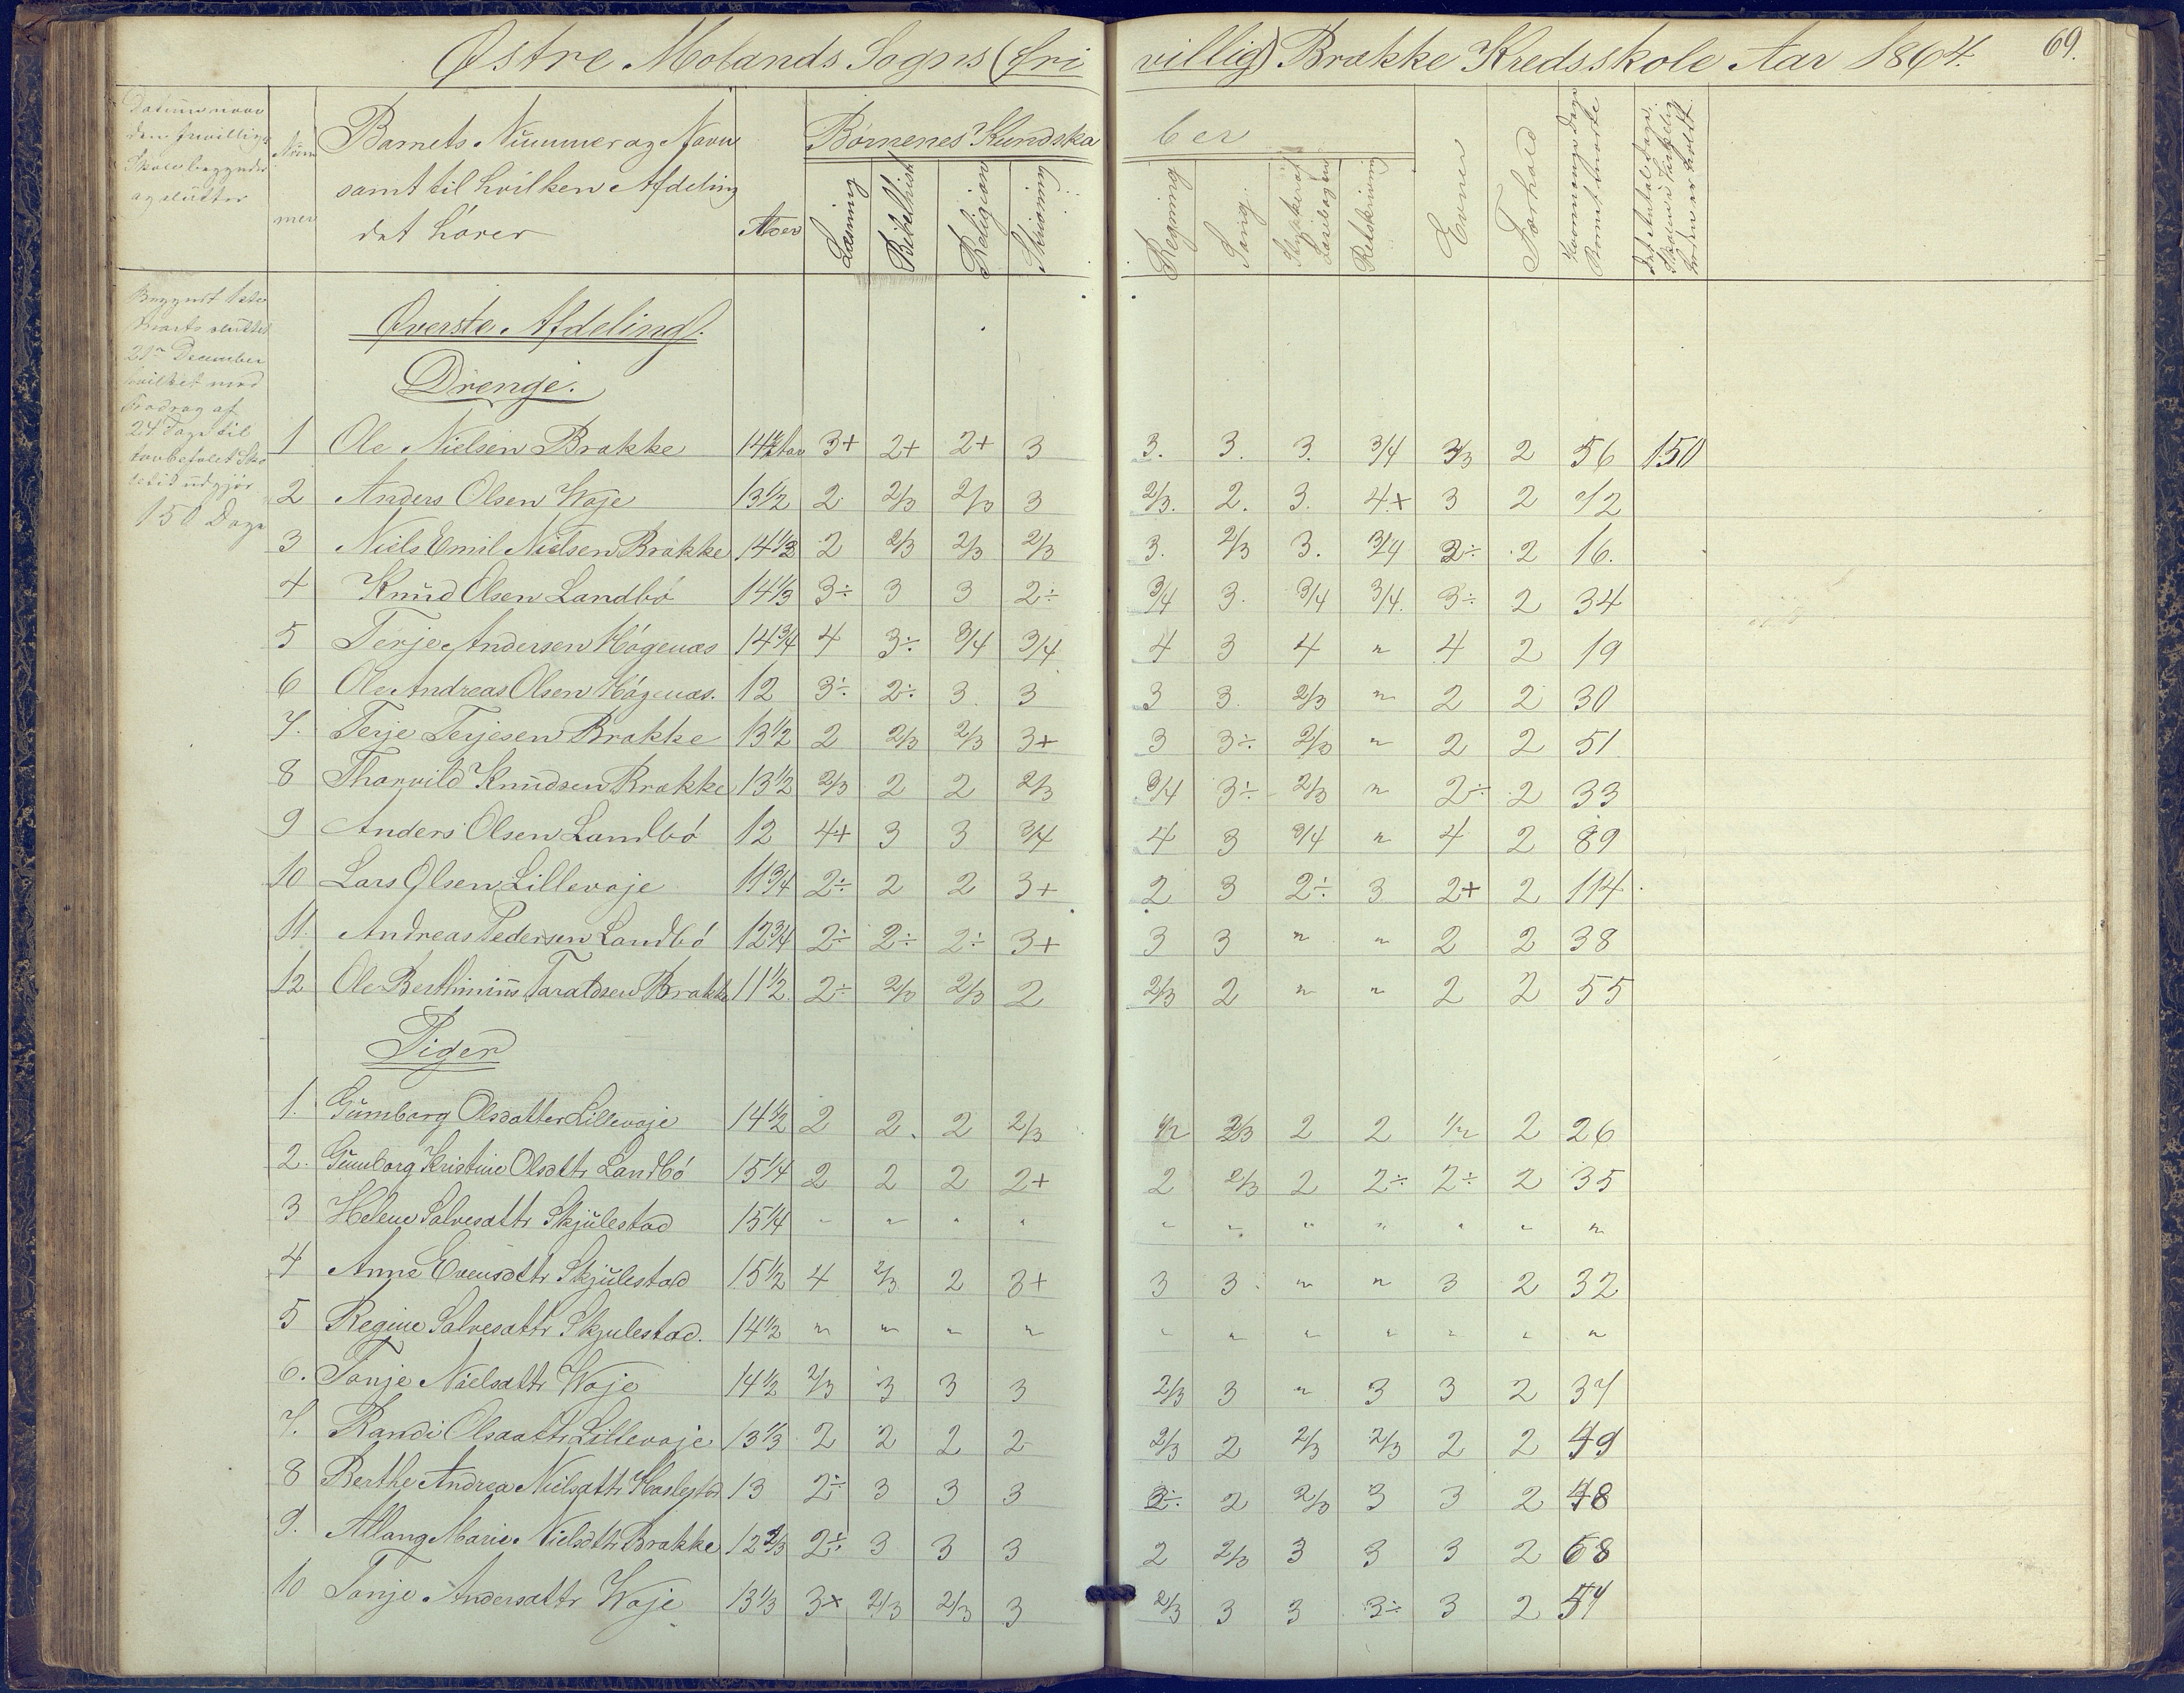 Østre Molands Sogns (fri villig) Brække Kredsskole Aar 1864. 69.
Datum naar den frivillige Skole begynder og slutter
Num mer
Barnets Nummer og Navn samt til hvilken Afdeling det hører
Alder
Børnenes Kundska ber
Læsning
Bibelhist
Religion
Skrivning
Regning
Sang.
Stykker af Læsebogen
Retskrivning
Evner
Forhold
Hvormange Dage Barnet
Det Antal Dage, Skolen i Virkelig heden er holdt
Begyndt 1ste
Marts sluttet
21de December
hvilket med
Fradrag af
24 Dage til
Skо
letid udgjør
150 Dage
Øverste Afdeling.
Drenge.
1 Ole Nielsen Brække 14 3+ 2+ 2+ 3 3. 3. 3. 3/4 3/3 2 56 150
2 Anders Olsen Woje 13 1/2 2 2/3 2/3 3 2/3. 2. 3. 4+ 3 2 12
3 Niels Emil Nielsen Brække 14 1/3 2 2/3 2/3 2/3 3. 2/3 3. 3/4 3÷ 2 16.
4 Knud Olsen Landbø 14 1/3 3÷ 3 3 2÷ 3/4 3. 3/4 3/4. 3÷ 2 34
5 Terje Andersen Høgenæs 14 3/4 4 3÷ 3/4 3/4 4 3 4 " 4 2 19
6 Ole Andreas Olsen Høgenæs. 12 3÷ 2÷ 3 3 3 3. 2/3 " 2 2 30
7. Terje Terjesen Brække 13 1/2 2 2/3 2/3 3+ 3 3÷ 2/3 " 2 2 51
8 Tharvild Knudsen Brække 13 1/2 2/3 2 2 2/3 3/4 3÷ 2/3 " 2÷ 2 33
9 Anders Olsen Landbø 12 4+ 3 3 3/4 4 3 3/4 " 4 2 89
10 Lars Olsen Lillevoje 11 3/4 2÷ 2 2 3+ 2 3 2÷ 3 2+ 2 114
11. Andreas Pedersen Landbø 12 3/4 2÷ 2÷ 2÷ 3+ 3 3 " " 2 2 38
12 Ole Berthinius Taraldsen Brække 11 1/2 2÷ 2/3 2/3 2 2/3 2 " " 2 2 55
Piger
1. Gumborg Olsdatter Lillevoje 14 1/2 2 2. 2 2/3 1/2 2/3 2 2 1/2 2 26
2. Gumborg Kristine Olsdtr Landbø 15 1/4 2 2 2 2+ 2 2/3 2 2÷ 2÷ 2 35
3 Helene Salvesdttr Skjulestad 15 1/4 " " " " " " " " " " "
4 Anne Evensdttr Skjulestad 15 1/2 4 2/3 2 3+ 3 3 " " 3 2 32
5 Regine Salvesdttr Skjulestad. 14 1/2 " " " " " " " " " " "
6. Tonje Nielsdttr Woje 14 1/2 2/3 3 3 3 2/3 3 " 3 3 2 37
7. Randi Olsdattr Lillevoje 13 1/3 2 2 2 2 2/3 2 2/3 2/3 2 2 49
8 Berthe Andrea Nielsdttr Haslestad 13 2÷ 3 3 3 3÷. 2 2/3 3 3 2 48
9. Allang Marie Nielsdttr Brække 12 2/3 2÷ 3 3 3 2 2/3 3 3 3 2 68
10 Tonje Andersdttr Woje 13 1/3 3+ 2/3 2/3 3 2/3 3 3 3÷ 3 2 54